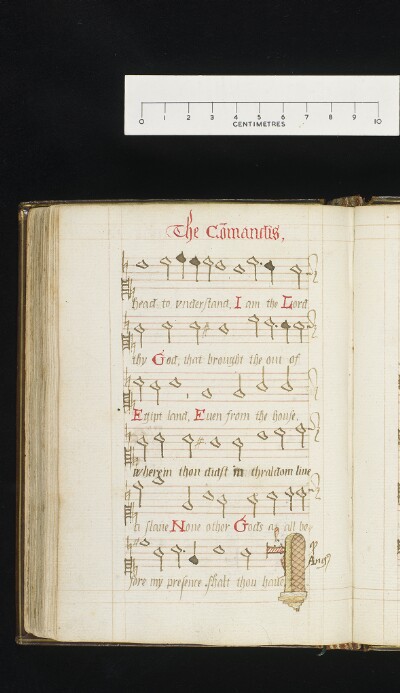 0 1 2 3 4 5 6 7 8 9 10
CENTIMETRES
The Cōmandts,
head to vnderstand, I am the Lord
thy God, that brought the out of
Egipt land, Euen from the house,
wherein thou didst in thraldom liue
a slaue None other Gods at all be,
fore my presence shalt thou haue